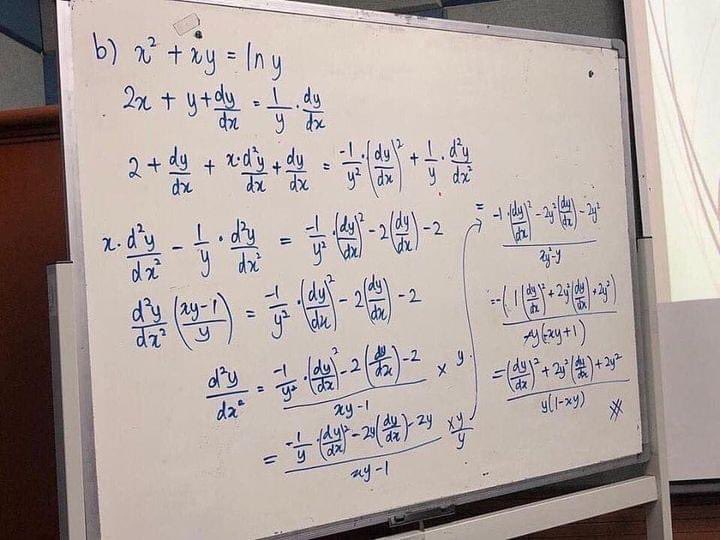 b) x² + xy = ln y
2x + y + dy/dx = 1/y · dy/dx
2 + dy/dx + x·d²y/dx + dy/dx = -1/y² · (dy/dx)² + 1/y · d²y/dx²
x · d²y/dx² - 1/y · d²y/dx² = -1/y² · (dy/dx)² - 2(dy/dx) - 2
d²y/dx² (xy-1/y) = -1/y² · (dy/dx)² - 2(dy/dx) - 2
d²y/dx² = (-1/y² · (dy/dx)² - 2(dy/dx) - 2)/(xy-1) × y
= (-1/y · (dy/dx)² - 2y(dy/dx) - 2y)/(xy-1) × y/y
= (-1·(dy/dx)² - 2y²(dy/dx) - 2y²)/(xy²-y)
= -(1(dy/dx)² + 2y²(dy/dx) + 2y²)/(-y(-xy+1))
= ((dy/dx)² + 2y²(dy/dx) + 2y²)/(y(1-xy))